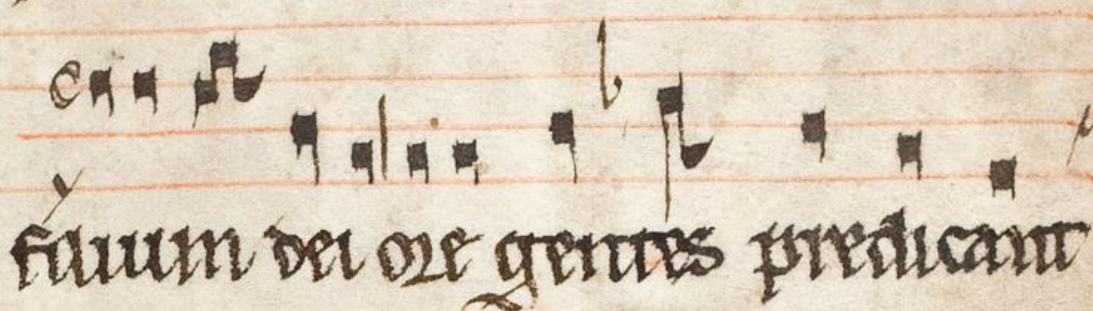 filium dei ore gentes predicant